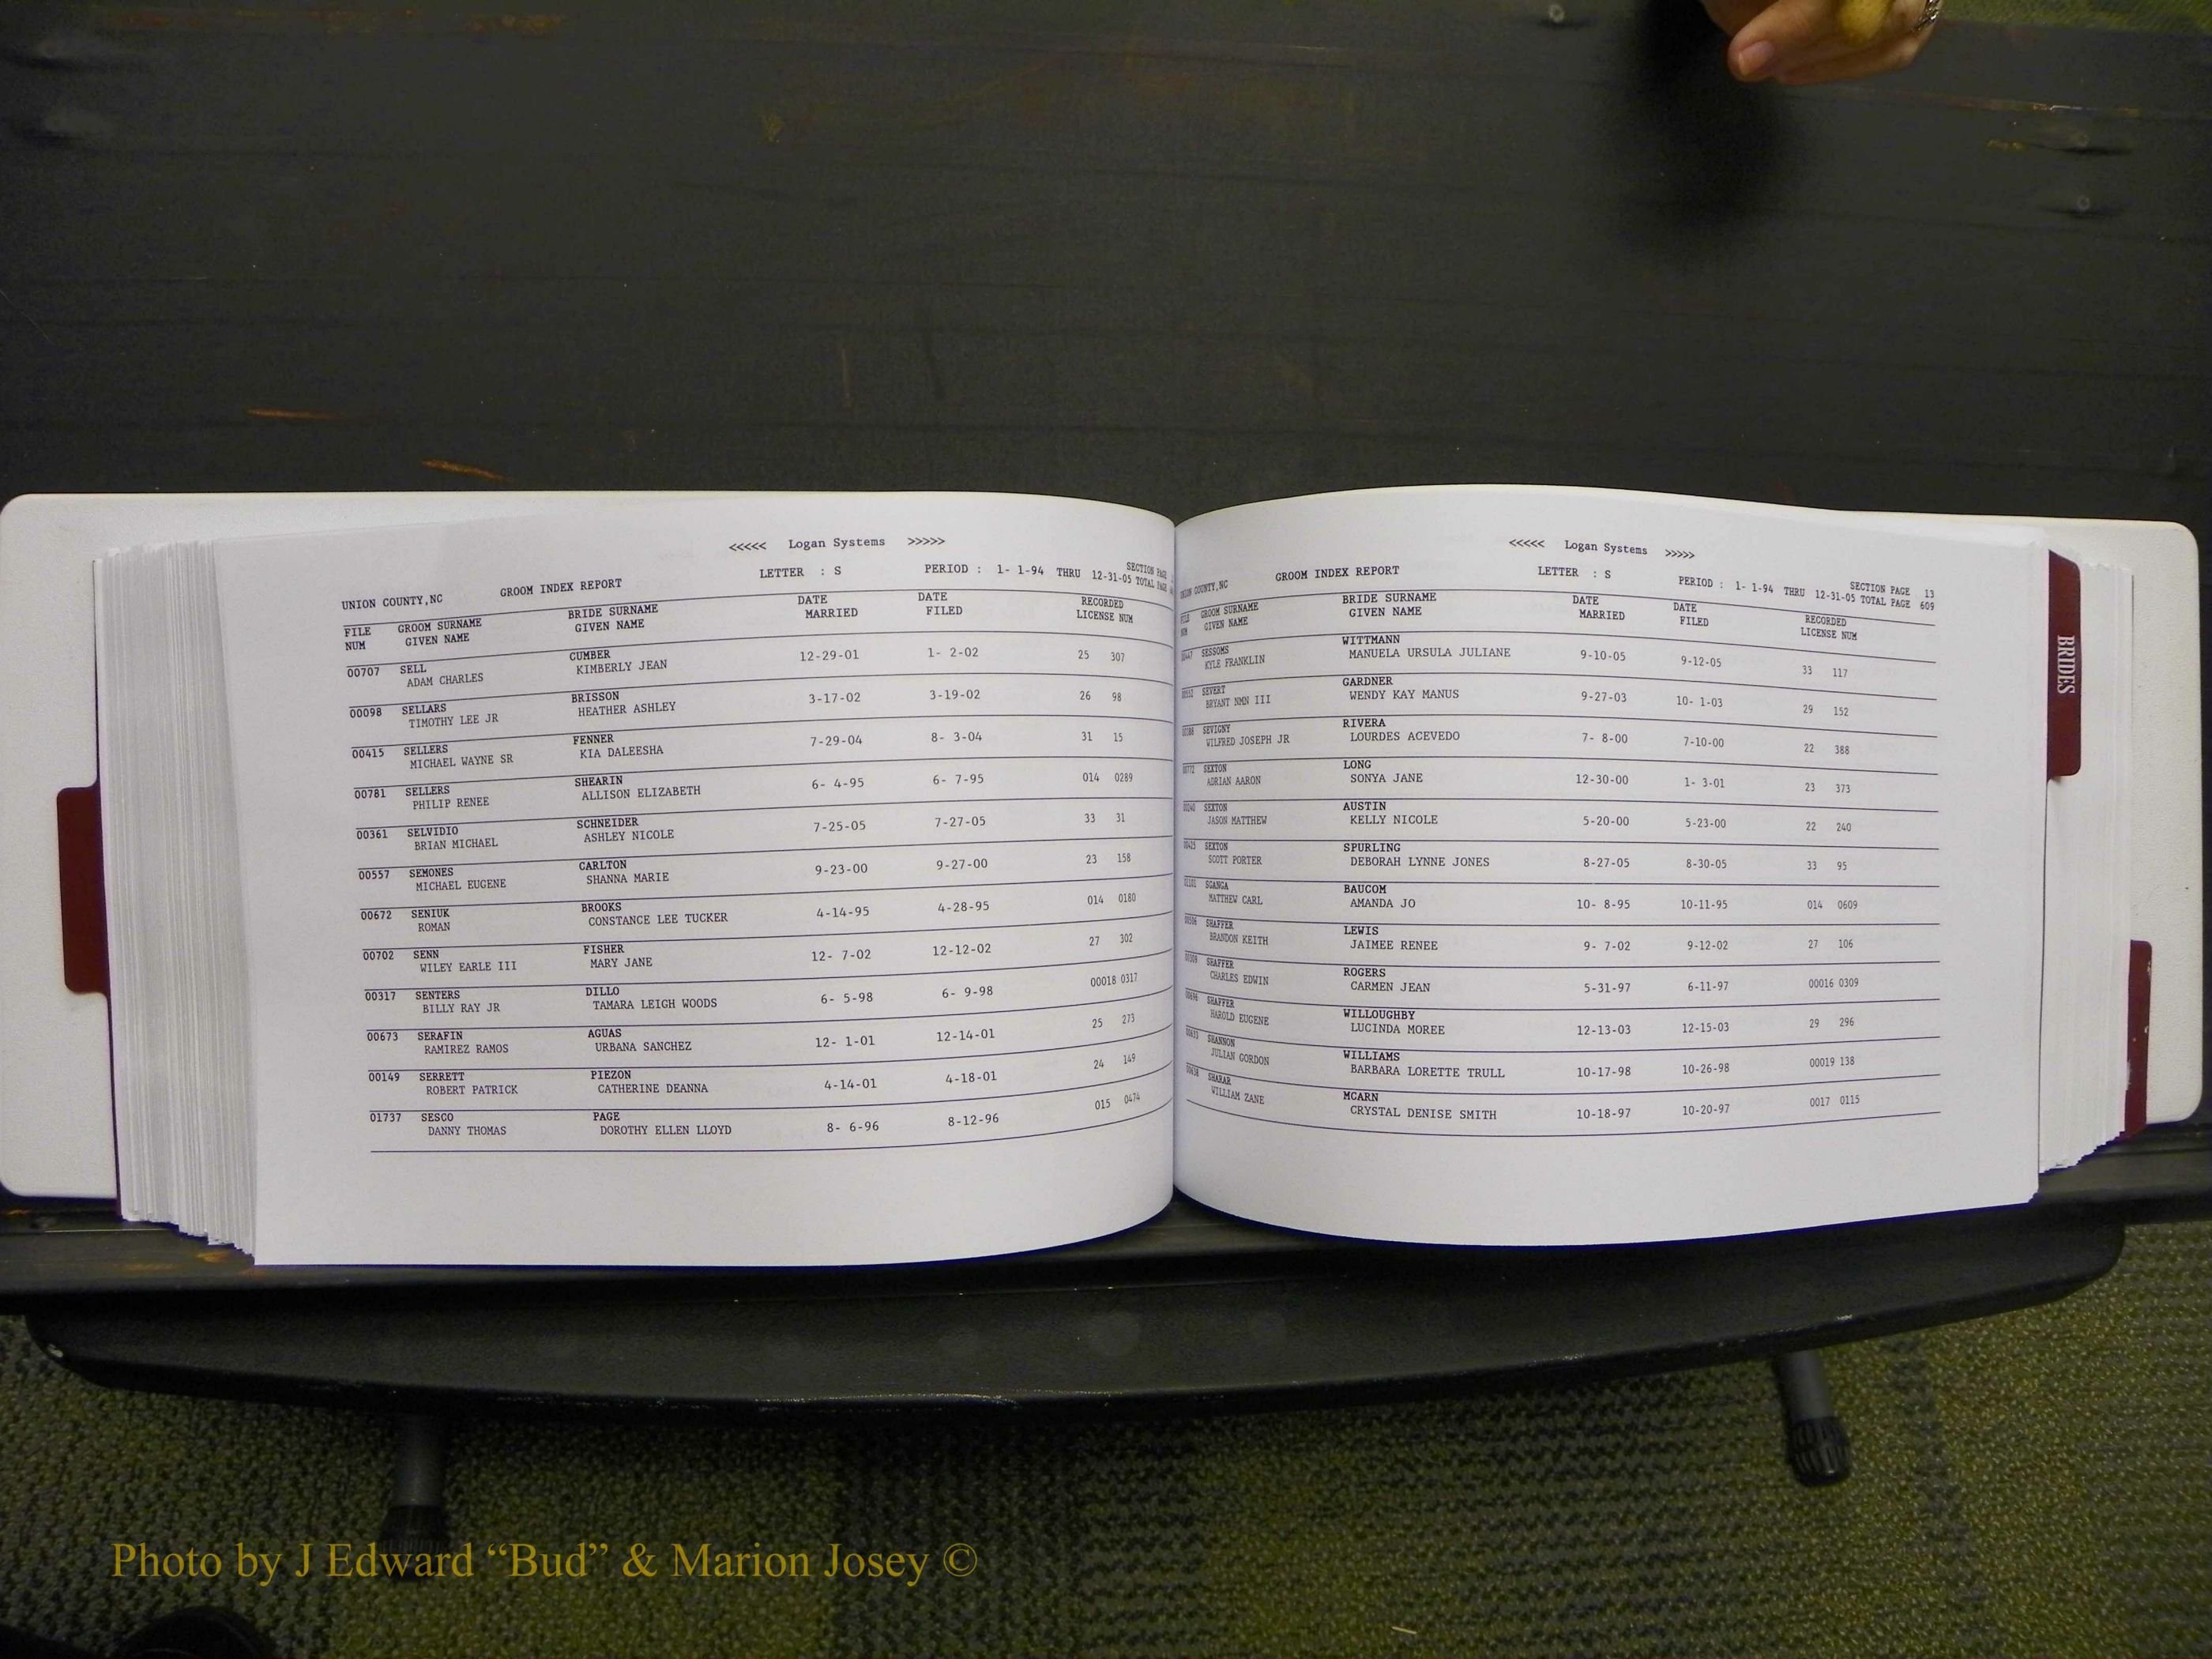 <<<<< Logan Systems >>>>>
UNION COUNTY,NC GROOM INDEX REPORT LETTER : S PERIOD : 1- 1-94 THRU 12-31-05 SECTION PAGE
TOTAL PAGE
FILE GROOM SURNAME BRIDE SURNAME DATE DATE RECORDED
NUM GIVEN NAME GIVEN NAME MARRIED FILED LICENSE NUM
00707 SELL CUMBER 12-29-01 1- 2-02 25 307
ADAM CHARLES KIMBERLY JEAN
00098 SELLARS BRISSON 3-17-02 3-19-02 26 98
TIMOTHY LEE JR HEATHER ASHLEY
00415 SELLERS FENNER 7-29-04 8- 3-04 31 15
MICHAEL WAYNE SR KIA DALEESHA
00781 SELLERS SHEARIN 6- 4-95 6- 7-95 014 0289
PHILIP RENEE ALLISON ELIZABETH
00361 SELVIDIO SCHNEIDER 7-25-05 7-27-05 33 31
BRIAN MICHAEL ASHLEY NICOLE
00557 SEMONES CARLTON 9-23-00 9-27-00 23 158
MICHAEL EUGENE SHANNA MARIE
00672 SENIUK BROOKS 4-14-95 4-28-95 014 0180
ROMAN CONSTANCE LEE TUCKER
00702 SENN FISHER 12- 7-02 12-12-02 27 302
WILEY EARLE III MARY JANE
00317 SENTERS DILLO 6- 5-98 6- 9-98 00018 0317
BILLY RAY JR TAMARA LEIGH WOODS
00673 SERAFIN AGUAS 12- 1-01 12-14-01 25 273
RAMIREZ RAMOS URBANA SANCHEZ
00149 SERRETT PIEZON 4-14-01 4-18-01 24 149
ROBERT PATRICK CATHERINE DEANNA
01737 SESCO PAGE 8- 6-96 8-12-96 015 0474
DANNY THOMAS DOROTHY ELLEN LLOYD
<<<<< Logan Systems >>>>>
UNION COUNTY,NC GROOM INDEX REPORT LETTER : S PERIOD : 1- 1-94 THRU 12-31-05 SECTION PAGE 13
TOTAL PAGE 609
FILE GROOM SURNAME BRIDE SURNAME DATE DATE RECORDED
NUM GIVEN NAME GIVEN NAME MARRIED FILED LICENSE NUM
SESSOMS WITTMANN 9-10-05 9-12-05 33 117
KYLE FRANKLIN MANUELA URSULA JULIANE
SEVERT GARDNER 9-27-03 10- 1-03 29 152
BRYANT NMN III WENDY KAY MANUS
SEVIGNY RIVERA 7- 8-00 7-10-00 22 388
WILFRED JOSEPH JR LOURDES ACEVEDO
SEXTON LONG 12-30-00 1- 3-01 23 373
ADRIAN AARON SONYA JANE
SEXTON AUSTIN 5-20-00 5-23-00 22 240
JASON MATTHEW KELLY NICOLE
SEXTON SPURLING 8-27-05 8-30-05 33 95
SCOTT PORTER DEBORAH LYNNE JONES
SGANGA BAUCOM 10- 8-95 10-11-95 014 0609
MATTHEW CARL AMANDA JO
SHAFFER LEWIS 9- 7-02 9-12-02 27 106
BRANDON KEITH JAIMEE RENEE
SHAFFER ROGERS 5-31-97 6-11-97 00016 0309
CHARLES EDWIN CARMEN JEAN
SHAFFER WILLOUGHBY 12-13-03 12-15-03 29 296
HAROLD EUGENE LUCINDA MOREE
SHANNON WILLIAMS 10-17-98 10-26-98 00019 138
JULIAN GORDON BARBARA LORETTE TRULL
SHARAR MCARN 10-18-97 10-20-97 0017 0115
WILLIAM ZANE CRYSTAL DENISE SMITH
BRIDES
Photo by J Edward “Bud” & Marion Josey ©